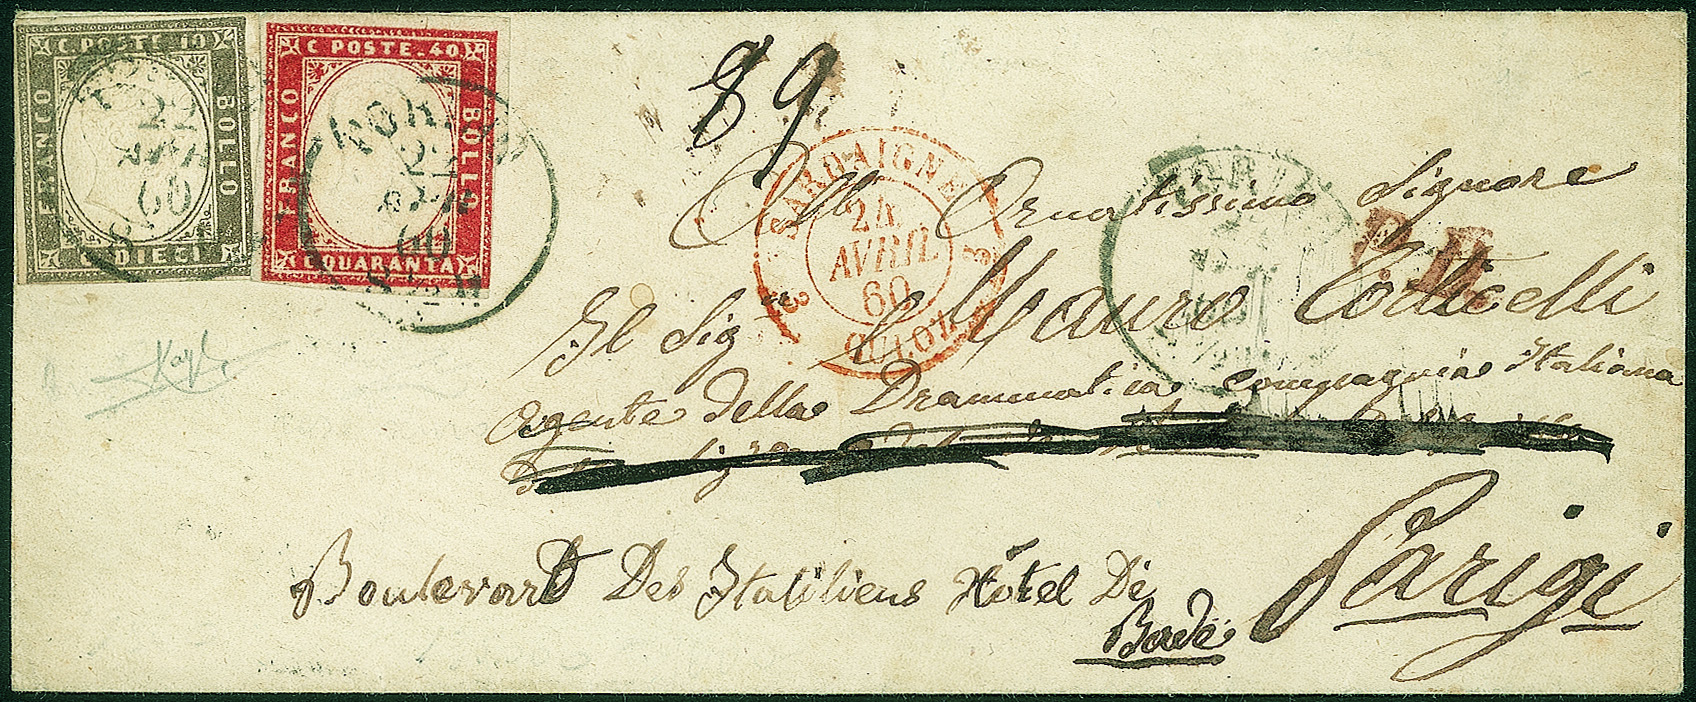 C POSTE 10
FRANCO
BOLLO
C DIECI
C POSTE. 40
FRANCO
BOLLO
C QUARANTA
22
APR
60
TORINO
22
APR
60
8 S
89
SARDAIGNE
24
AVRIL
60
CULOZ
P.D.
All Ornatissimo Signore
Il Sig L Mauro Corticelli
Agente della Drammatica Compagnia Italiana
Boulevard Des Italiliens Hôtel De
Bade
Parigi